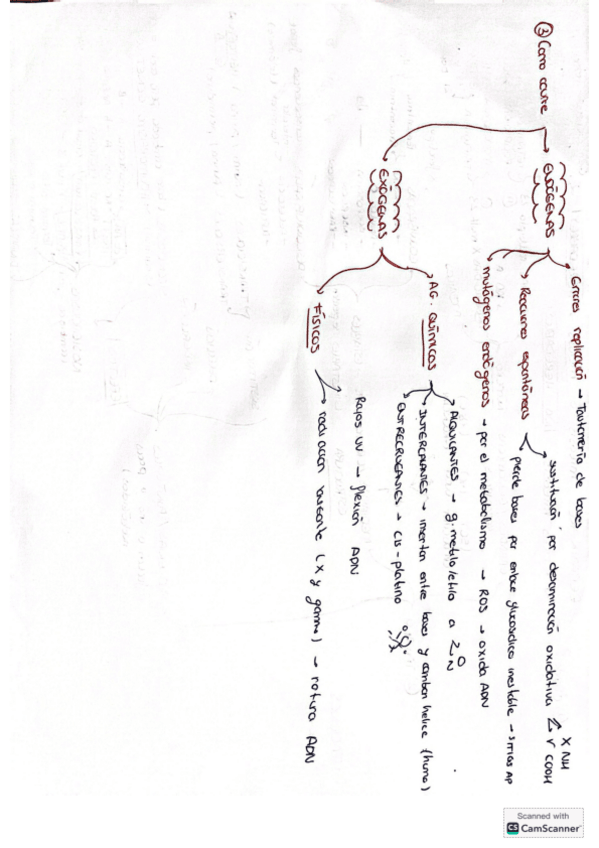 ③ Como ocurre
ENDÓGENAS
Errores replicación → Tautomería de bases
Reacciones espontáneas
sustitución por desaminación oxidativa
X NH
Y COOH
pierde bases por enlace glucosídico inestable → sitios AP
mutágenos endógenos → por el metabolismo → ROS → oxida ADN
EXÓGENAS
AG. QUÍMICOS
ALQUILANTES → g. metilo/etilo a
O
N
INTERCALANTES → insertan entre bases y cambian hélice (humo)
ENTRECRUZANTES → cis-platino
FÍSICOS
Rayos UV → flexión ADN
radiación ionizante (X y gamma) → rotura ADN
Scanned with
CS CamScanner